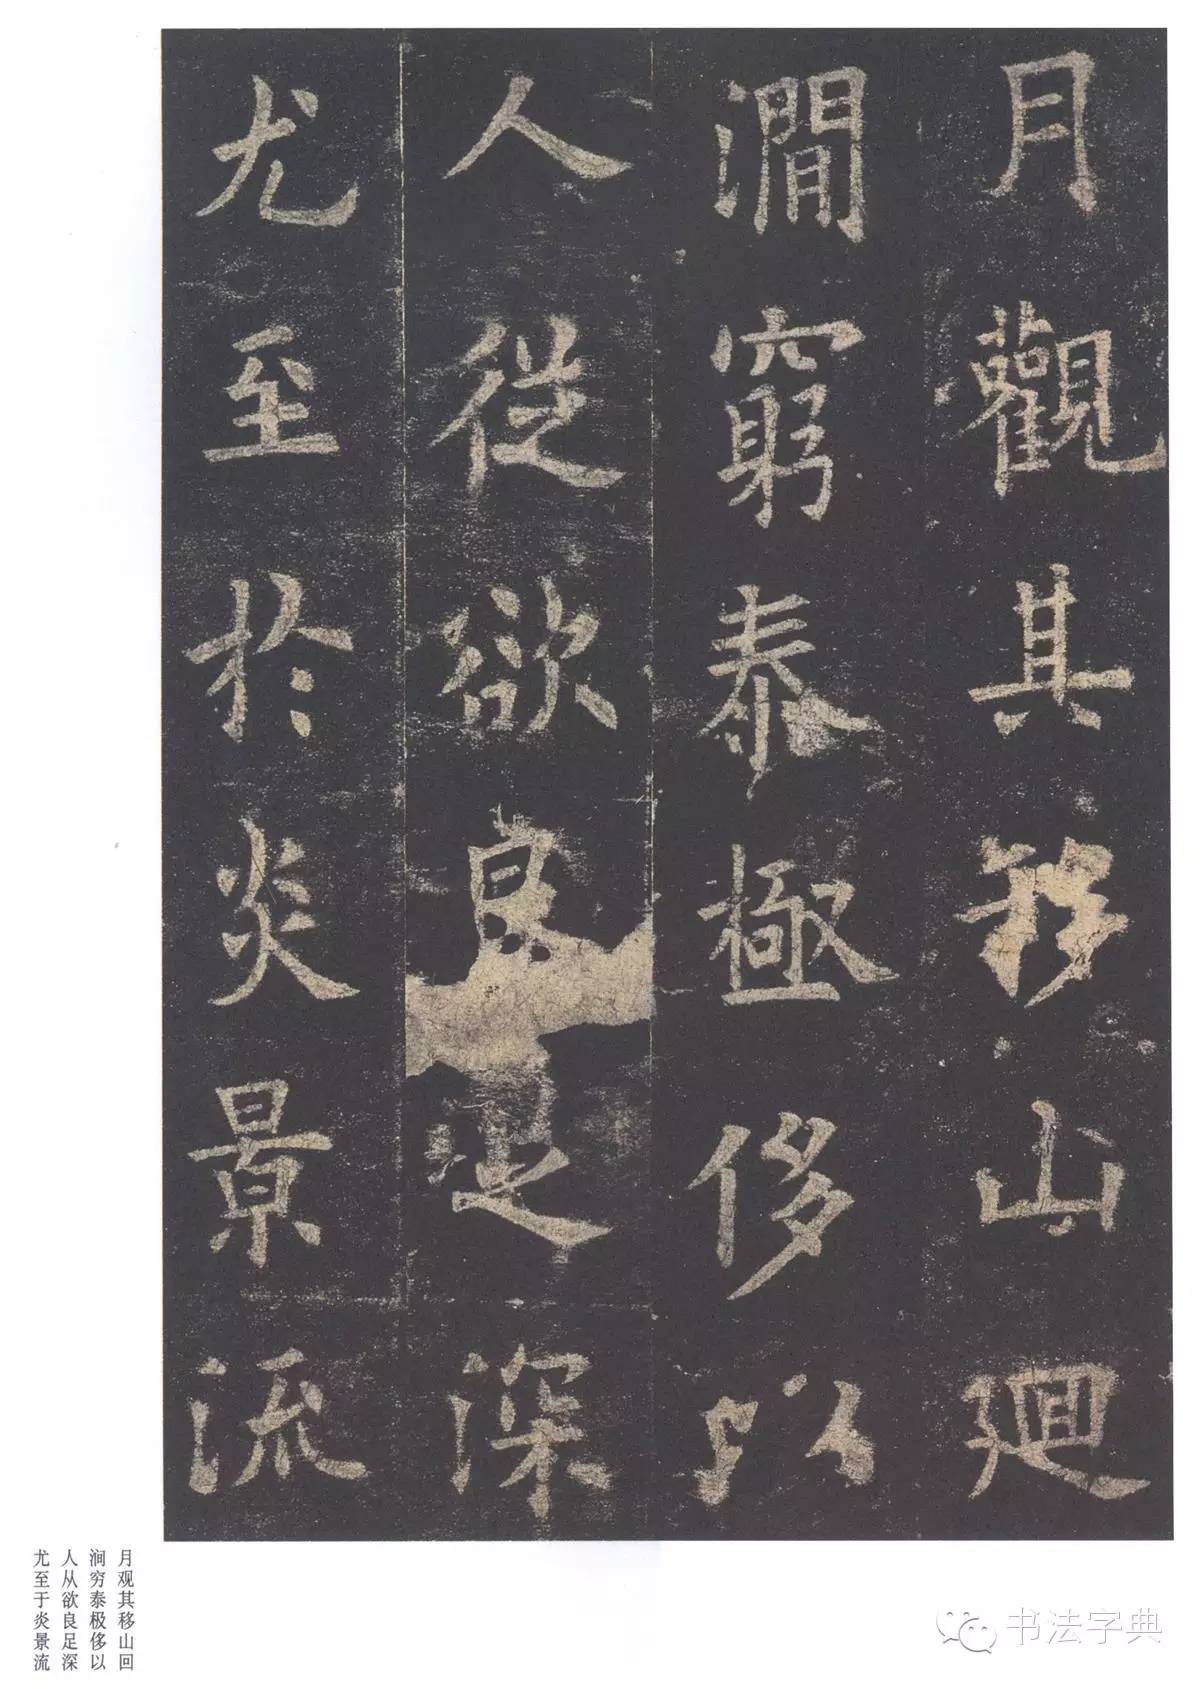 月觀其移山廻
澗窮泰極侈以
人從欲良足深
尤至於炎景流
月观其移山回
涧穷泰极侈以
人从欲良足深
尤至于炎景流
书法字典